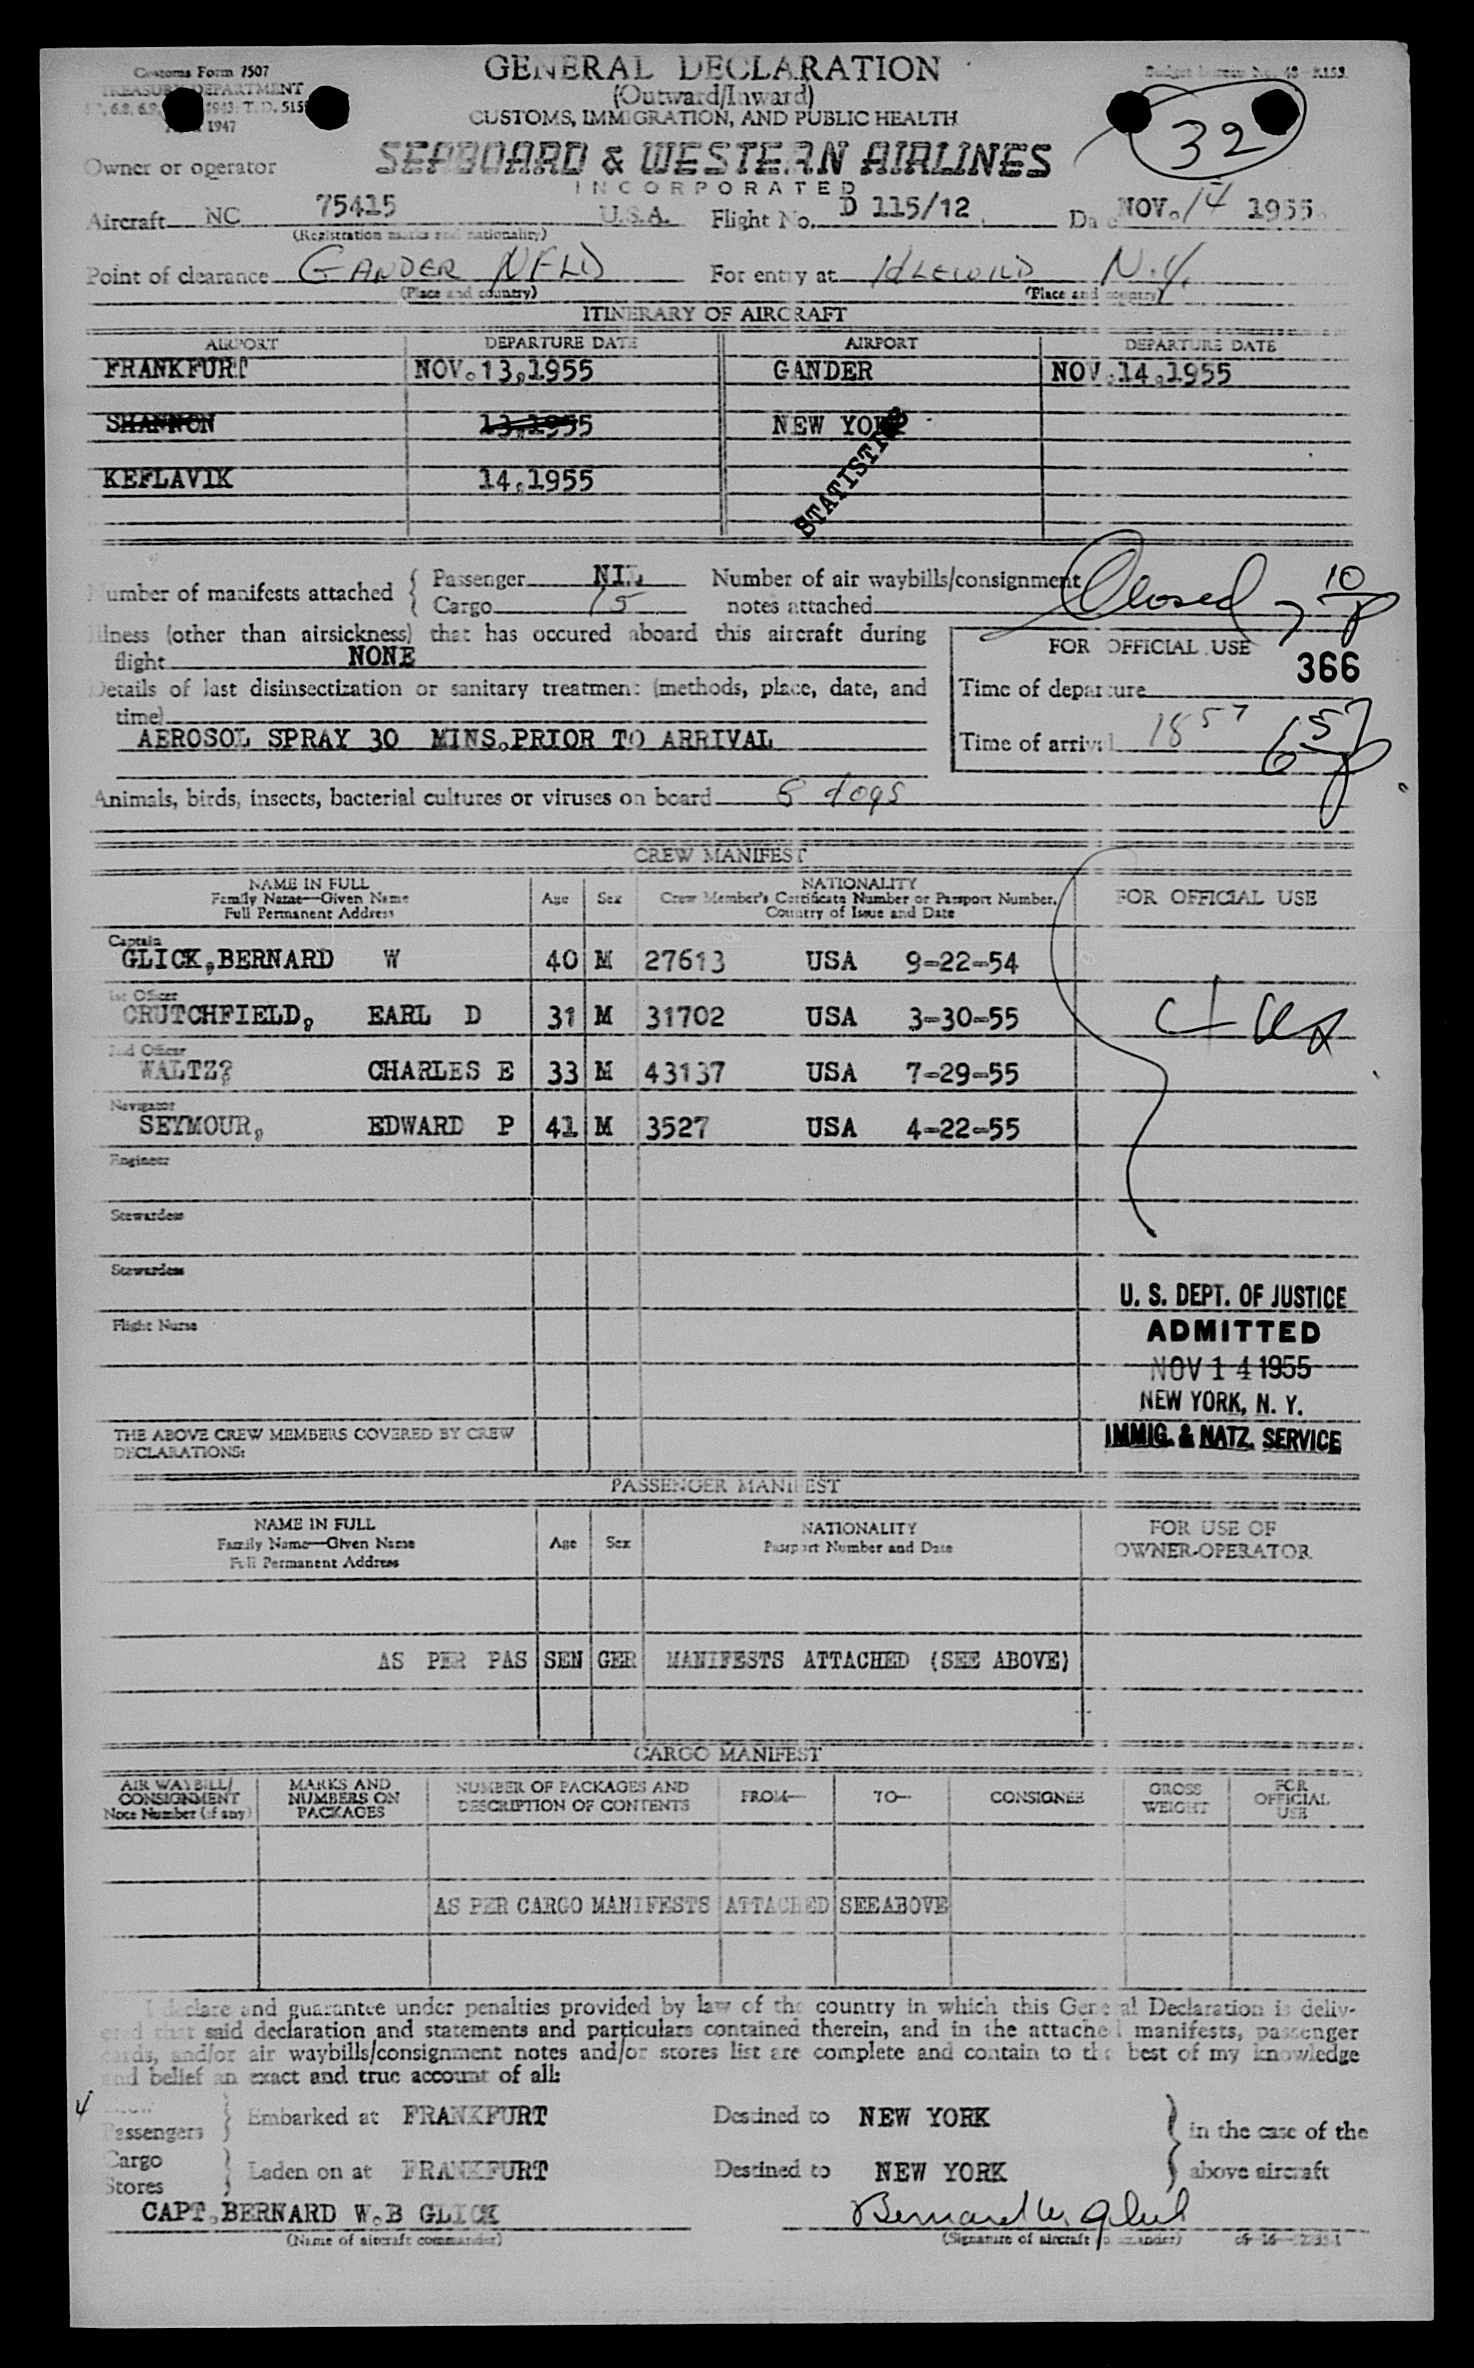 Customs Form 7507
TREASURY DEPARTMENT
1947
GENERAL DECLARATION
(Outward/Inward)
CUSTOMS, IMMIGRATION, AND PUBLIC HEALTH
32
Owner or operator SEABOARD & WESTERN AIRLINES
INCORPORATED
Aircraft NC 75415 U.S.A. Flight No. D 115/12 Date NOV. 14 1955
(Registration marks and nationality)
Point of clearance GANDER NFLD For entry at IDLEWILD N.Y.
(Place and country) (Place and country)
ITINERARY OF AIRCRAFT
AIRPORT DEPARTURE DATE AIRPORT DEPARTURE DATE
FRANKFURT NOV.13,1955 GANDER NOV.14.1955
SHANNON 13,1955 NEW YORK
KEFLAVIK 14,1955
STATISTICS
Number of manifests attached { Passenger NIL Number of air waybills/consignment
Cargo 15 notes attached
Closed 7 10/P
Illness (other than airsickness) that has occured aboard this aircraft during
flight NONE
FOR OFFICIAL USE
366
Details of last disinsectization or sanitary treatment (methods, place, date, and
time)
Time of departure
AEROSOL SPRAY 30 MINS.PRIOR TO ARRIVAL
Time of arrival 1857 6 57/P
Animals, birds, insects, bacterial cultures or viruses on board 8 dogs
CREW MANIFEST
NAME IN FULL
Family Name—Given Name
Full Permanent Address
Age Sex
NATIONALITY
Crew Member's Certificate Number or Passport Number.
Country of Issue and Date
FOR OFFICIAL USE
Captain
GLICK,BERNARD W 40 M 27613 USA 9-22-54
1st Officer
CRUTCHFIELD, EARL D 31 M 31702 USA 3-30-55
2nd Officer
WALTZ? CHARLES E 33 M 43137 USA 7-29-55
Navigator
SEYMOUR, EDWARD P 41 M 3527 USA 4-22-55
Engineer
Stewardess
Stewardess
Flight Nurse
U. S. DEPT. OF JUSTICE
ADMITTED
NOV 14 1955
NEW YORK, N. Y.
IMMIG. & NATZ. SERVICE
THE ABOVE CREW MEMBERS COVERED BY CREW
DECLARATIONS:
PASSENGER MANIFEST
NAME IN FULL
Family Name—Given Name
Full Permanent Address
Age Sex
NATIONALITY
Passport Number and Date
FOR USE OF
OWNER-OPERATOR
AS PER PAS SEN GER MANIFESTS ATTACHED (SEE ABOVE)
CARGO MANIFEST
AIR WAYBILL/
CONSIGNMENT
Note Number (if any)
MARKS AND
NUMBERS ON
PACKAGES
NUMBER OF PACKAGES AND
DESCRIPTION OF CONTENTS
FROM— TO— CONSIGNEE
GROSS
WEIGHT
FOR
OFFICIAL
USE
AS PER CARGO MANIFESTS ATTACHED SEEABOVE
I declare and guarantee under penalties provided by law of the country in which this General Declaration is deliv-
ered that said declaration and statements and particulars contained therein, and in the attached manifests, passenger
cards, and/or air waybills/consignment notes and/or stores list are complete and contain to the best of my knowledge
and belief an exact and true account of all:
4 Crew
Passengers } Embarked at FRANKFURT Destined to NEW YORK } in the case of the
Cargo
Stores } Laden on at FRANKFURT Destined to NEW YORK } above aircraft
CAPT.BERNARD W.B GLICK Bernard W. Glick
(Name of aircraft commander) (Signature of aircraft commander)